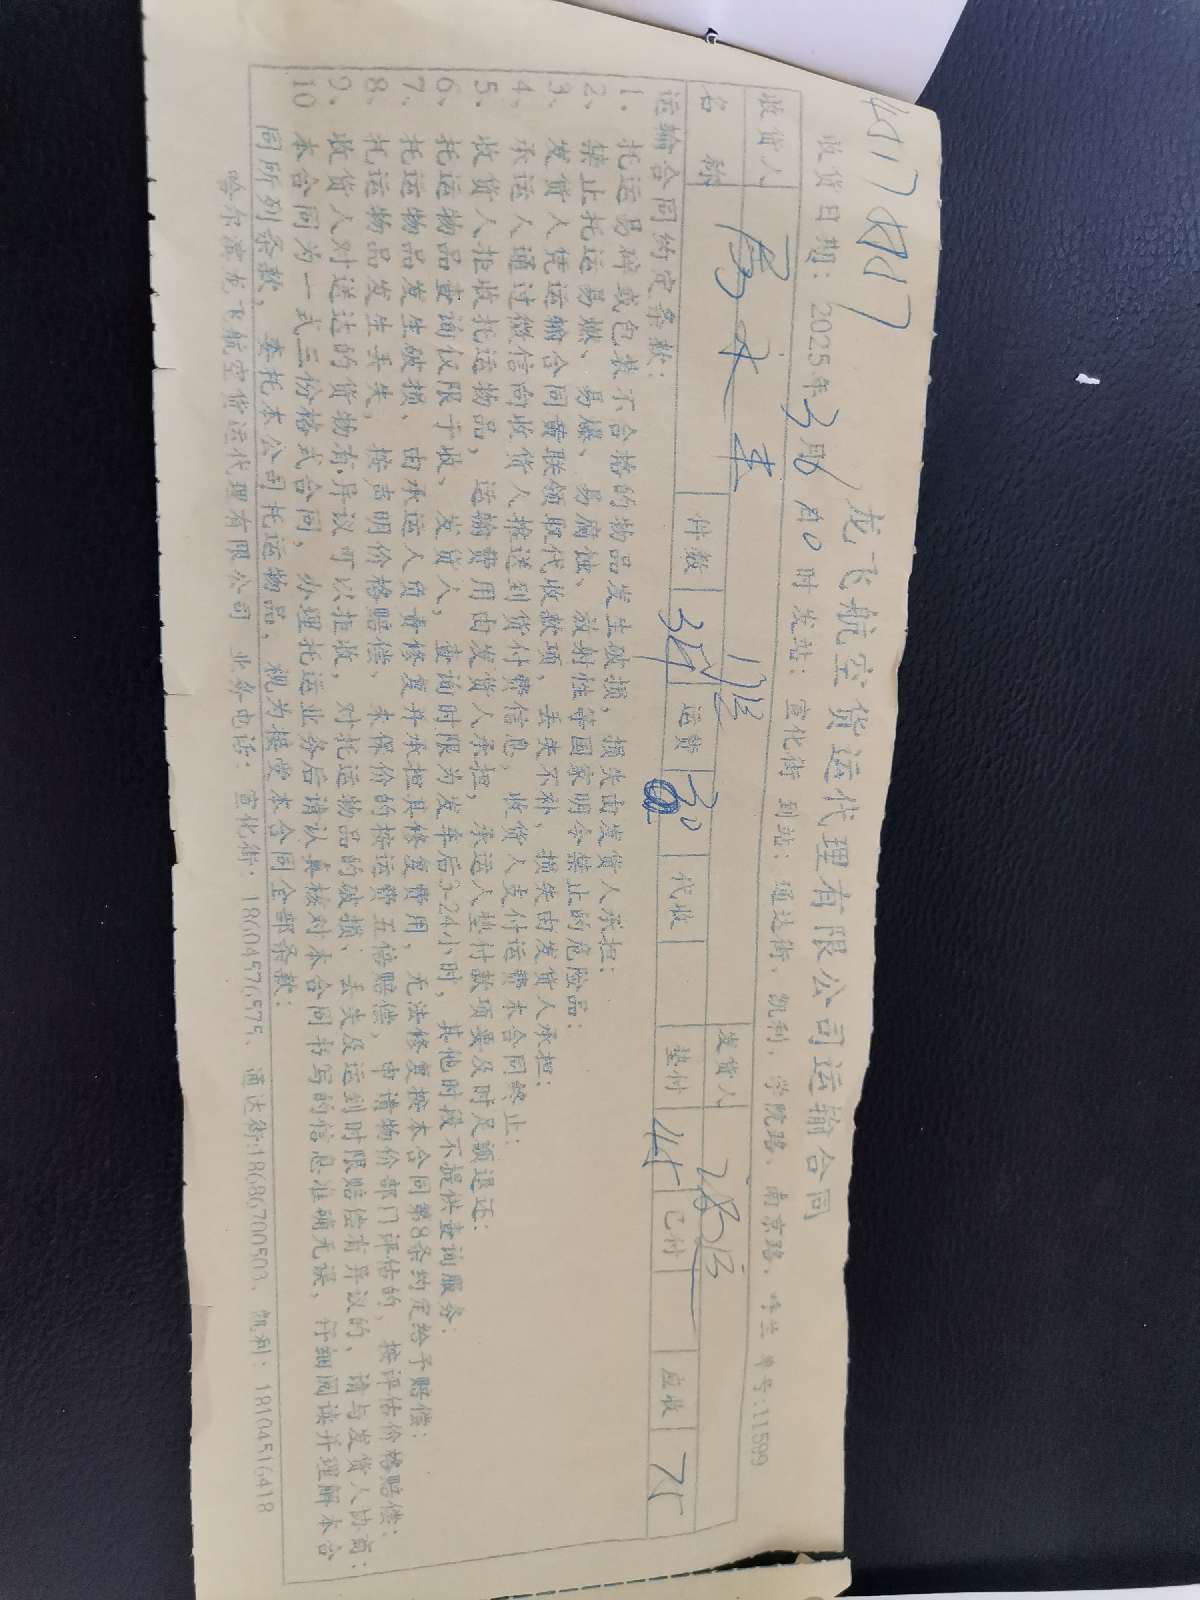 龙飞航空货运代理有限公司运输合同
收货日期: 2025年3月 时 发站: 宣化街 到站: 通达街、凯利、学院路、南京路、 单号:11599
收货人 发货人
名 称 件数 3件 运费 30 代收 垫付 45 已付 应收 75
运输合同约定条款:
1、托运易碎或包装不合格的物品发生破损, 损失由发货人承担;
2、禁止托运易燃、易爆、易腐蚀、放射性等国家明令禁止的危险品;
3、发货人凭运输合同黄联领取代收款项, 丢失不补, 损失由发货人承担;
4、承运人通过微信向收货人推送到货付费信息, 收货人支付运费本合同终止;
5、收货人拒收托运物品, 运输费用由发货人承担, 承运人垫付款项要及时足额退还;
6、托运物品查询仅限于收、发货人, 查询时限为发车后3-24小时, 其他时段不提供查询服务;
7、托运物品发生破损、由承运人负责修复并承担其修复费用, 无法修复按本合同第8条约定给予赔偿;
8、托运物品发生丢失, 按声明价格赔偿、未保价的按运费五倍赔偿, 申请物价部门评估的, 按评估价格赔偿;
9、收货人对送达的货物有异议可以拒收, 对托运物品的破损、丢失及运到时限赔偿有异议的, 请与发货人协商;
10 本合同为一式三份格式合同, 办理托运业务后请认真核对本合同书写的信息准确无误, 仔细阅读并理解本合
同所列条款, 委托本公司托运物品, 视为接受本合同全部条款;
哈尔滨龙飞航空货运代理有限公司 业务电话: 宣化街: 18604576575、 通达街:18686700503、 凯利: 18104516418